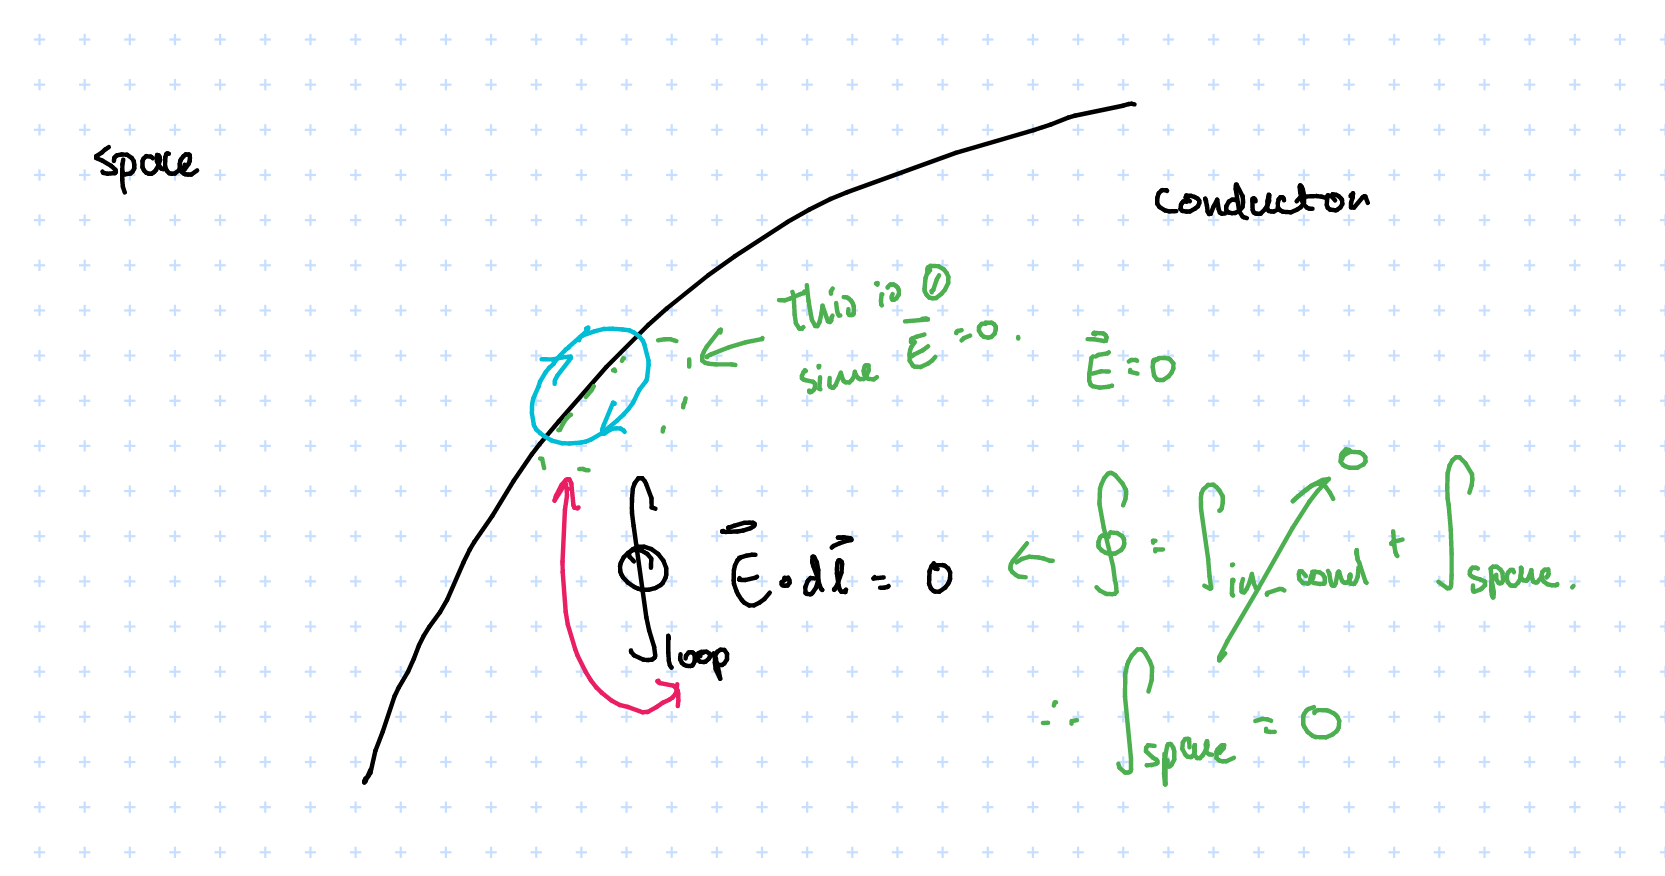 space
conductor
this is 0
since \vec{E} = 0.
\vec{E} = 0
\oint_{loop} \vec{E} \cdot d\vec{l} = 0 ← \oint = \int_{in\_cond} + \int_{space}.
0
∴ \int_{space} = 0